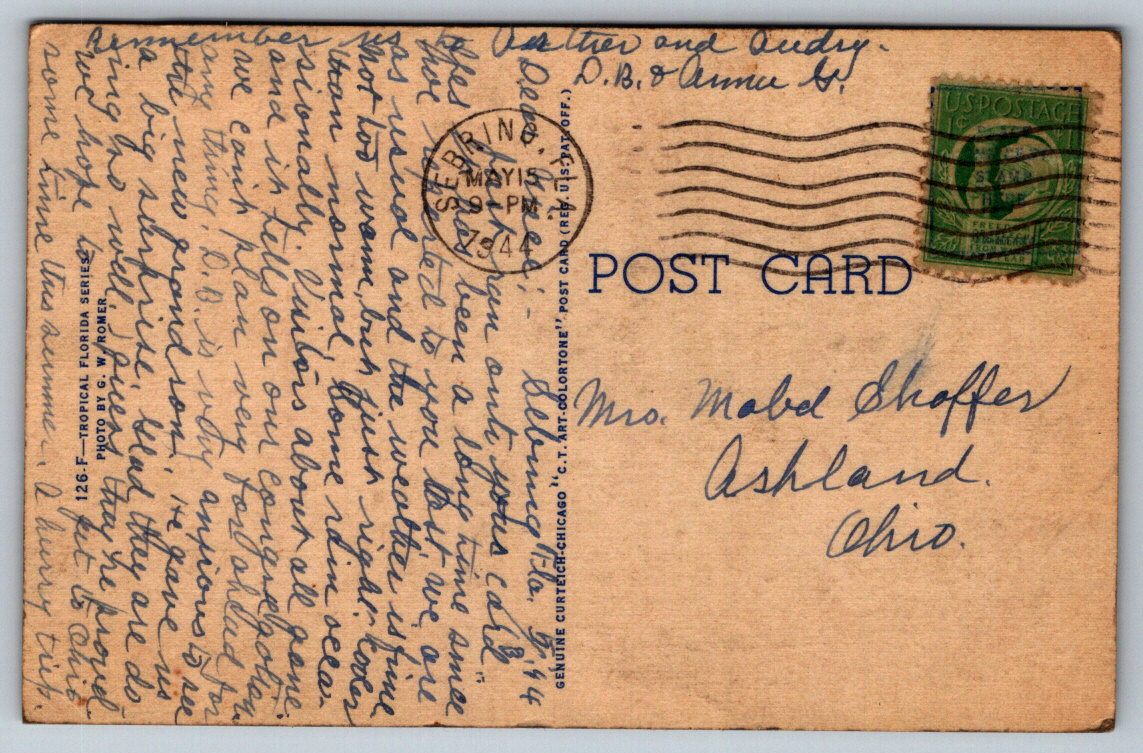 Dear Mabel :- Sebring Fla. 5/8, 44
Just ran onto your card
Yes has been a long time since
reported to you but we are
as usual and the weather is fine
not too warm, but just right. Cooler
than normal, some rain occa-
sionally. Visitors about all gone.
and it tells on our congregation
we can't plan very far ahead for
any thing. D.B. is very anxious to see
the new grandson. He gave us
a big surprise. Glad they are do-
ing so well. Guess they're proud
we hope to get to Ohio
some time this summer. A hurry trip.
remember us to Esther and Audry.
D. B. & Annie G.
126:F—TROPICAL FLORIDA SERIES
PHOTO BY G. W. ROMER
GENUINE CURTEICH-CHICAGO "C.T. ART-COLORTONE" POST CARD (REG. U.S. PAT. OFF.)
SEBRING, FLA.
MAY 15
9 - PM
1944
U.S. POSTAGE
POST CARD
Mrs. Mabel Shaffer
Ashland.
Ohio.